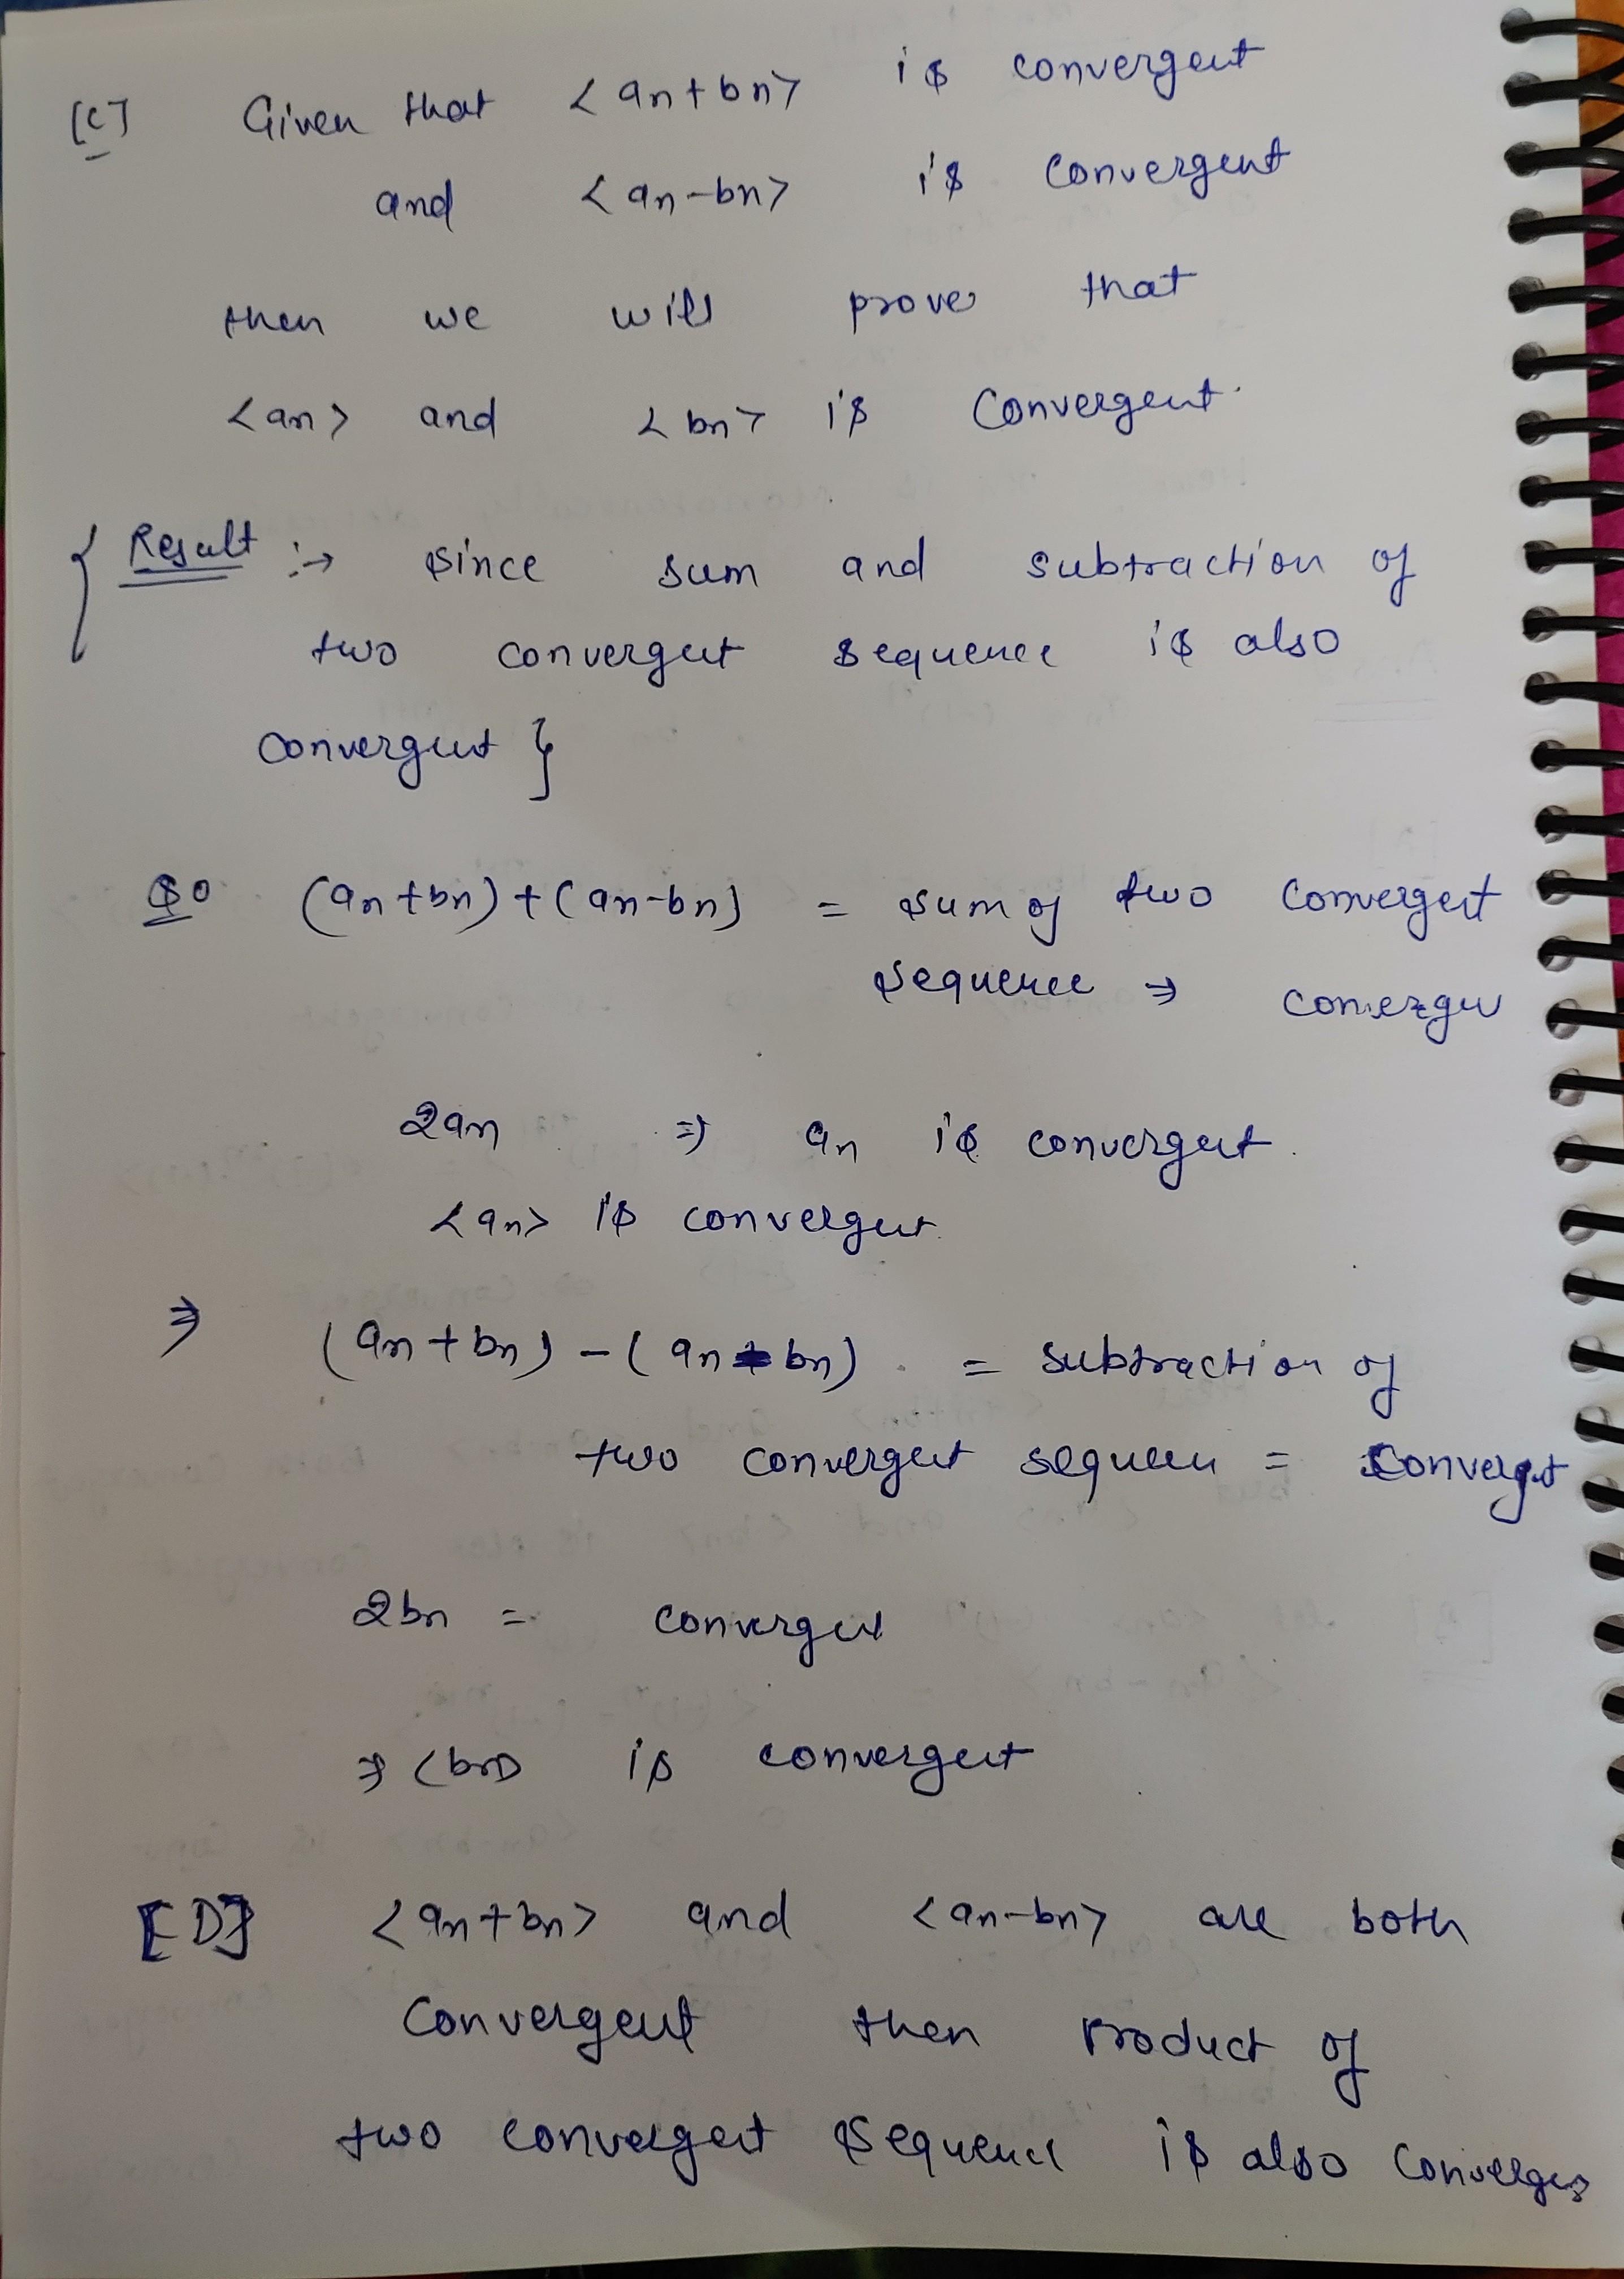 [C] Given that <an+bn> is convergent
and <an-bn> is convergent
then we will prove that
<an> and <bn> is Convergent.
{ Result :→ since sum and subtraction of
two convergent sequence is also
convergent }
So (an+bn)+(an-bn) = sum of two convergent
sequence ⇒
2an ⇒ an is convergent.
<an> is convergent.
⇒ (an+bn)-(an-bn) = subtraction of
two convergent sequen = Convergt
2bn = convergent
⇒ <bn> is convergent
[D] <an+bn> and <an-bn> are both
Convergent then Product of
two convergent sequence is also Converges